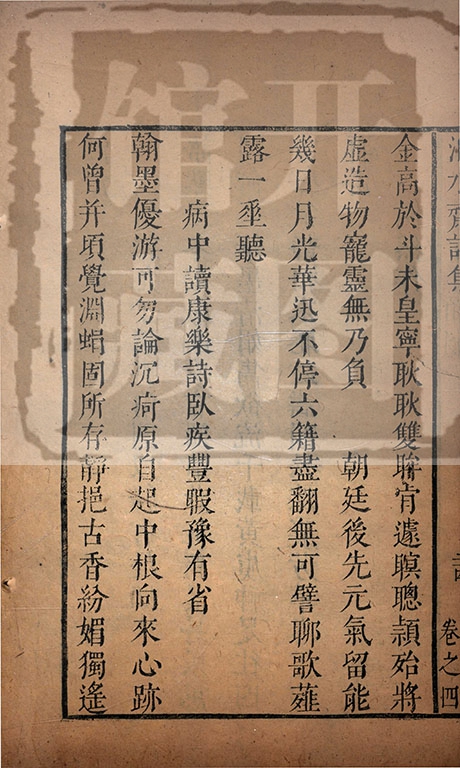 金高於斗未皇寧耿耿雙聯肯遽瞑聰頴殆將
虛造物寵靈無乃負　朝廷後先元氣留能
幾日月光華迅不停六籍盡翻無可譬聊歌薤
露一垂聽
病中讀康樂詩臥疾豐暇豫有省
翰墨優游可勿論沉疴原自起中根向來心跡
何曾并頃覺淵蜎固所存靜挹古香紛媚獨遙
卷之四
開圖
館藏